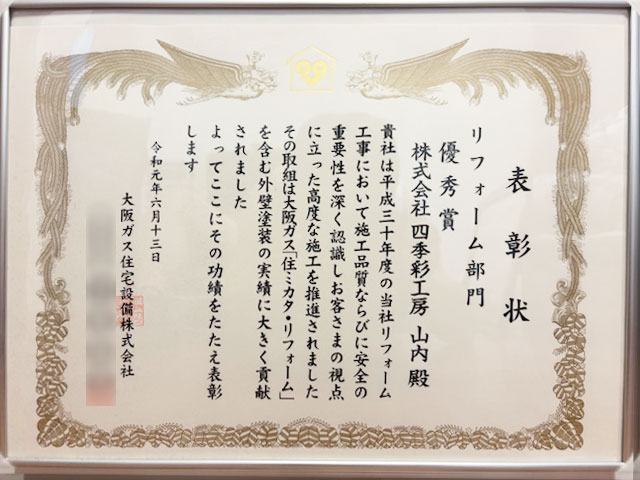 表彰状
リフォーム部門
優秀賞
株式会社 四季彩工房 山内 殿
貴社は平成三十年度の当社リフォーム
工事において施工品質ならびに安全の
重要性を深く認識しお客さまの視点
に立った高度な施工を推進されました
その取組は大阪ガス「住ミカタ・リフォーム」
を含む外壁塗装の実績に大きく貢献
されました
よってここにその功績をたたえ表彰
します
令和元年六月十三日
大阪ガス住宅設備株式会社